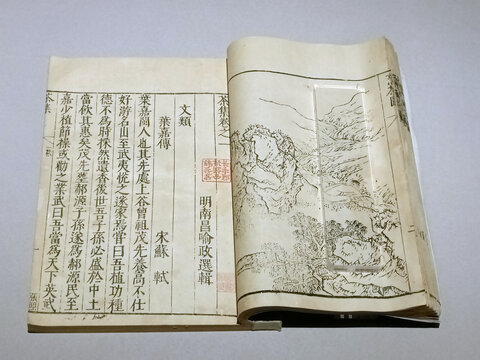 茶集卷之一
明南昌喻政選輯
文類
葉嘉傳　宋蘇軾
葉嘉閩人也其先處上谷曾祖茂先養高不仕
好游名山至武夷悅之遂家焉嘗曰吾植功種
德不為時採然遺香後世吾子孫必盛於中土
當飲其惠矣茂先葬郝源子孫遂為郝源民至
嘉少植節操或勸之業武曰吾當為天下英武
茶集